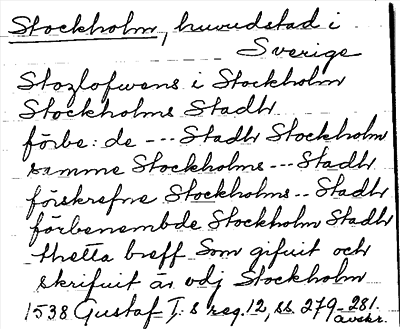 Stockholm, huvudstad i
Sverige
Stozlofwens i Stockholm
Stockholms Stadh
förbe: de --- Stadh Stockholm
samme Stockholms --- Stadh
förskrefne Stockholms -- Stadh
förbenembde Stockholm Stadh
thetta breff Som gifuit och
skrifuit är vdj Stockholm
1538 Gustaf I:s reg. 12, ss. 279-281.
avskr.